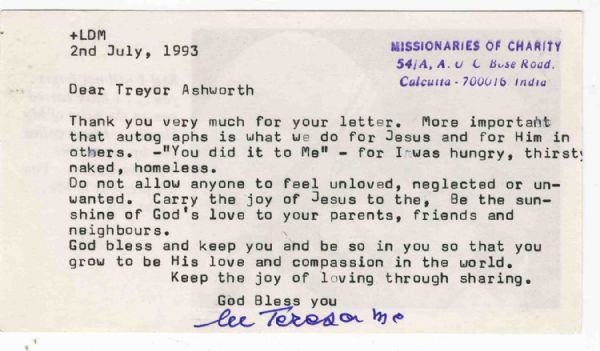 +LDM
2nd July, 1993
MISSIONARIES OF CHARITY
54/A, A. J C Bose Road.
Calcutta - 700016 India
Dear Treyor Ashworth
Thank you very much for your letter. More important
that autog aphs is what we do for Jesus and for Him in
others. -"You did it to Me" - for I was hungry, thirsty
naked, homeless.
Do not allow anyone to feel unloved, neglected or un-
wanted. Carry the joy of Jesus to the, Be the sun-
shine of God's love to your parents, friends and
neighbours.
God bless and keep you and be so in you so that you
grow to be His love and compassion in the world.
Keep the joy of loving through sharing.
God Bless you
Teresa mc